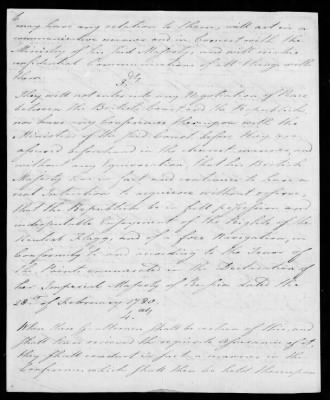 6
may have any relation to them, will act in a
communicative manner and in Concert with the
Ministry of his said Majesty, and will make
confidential Communications of all things with
them.
3dly
They will not enter into any Negotiation of Peace
between the British Court and the Republick
nor have any Conferences thereupon with the
Ministers of the said Court before they are
assured beforehand in the clearest manner, and
without any Equivocation that his British
Majesty has in fact and continues to have a
real Intention to acquiesce without reserve,
that the Republick be in full possession and
indisputable Enjoyment of the Rights of the
Neutral Flagg, and of a free Navigation, in
Conformity to and according to the Tenor of
the Points enumerated in the Declaration of
her Imperial Majesty of Russia dated the
28th of February 1780.
4thly
When these Gentlemen shall be certain of this and
shall have received the requisite assurances of it,
they shall conduct in such a manner in the
Conferences which shall then be held thereupon